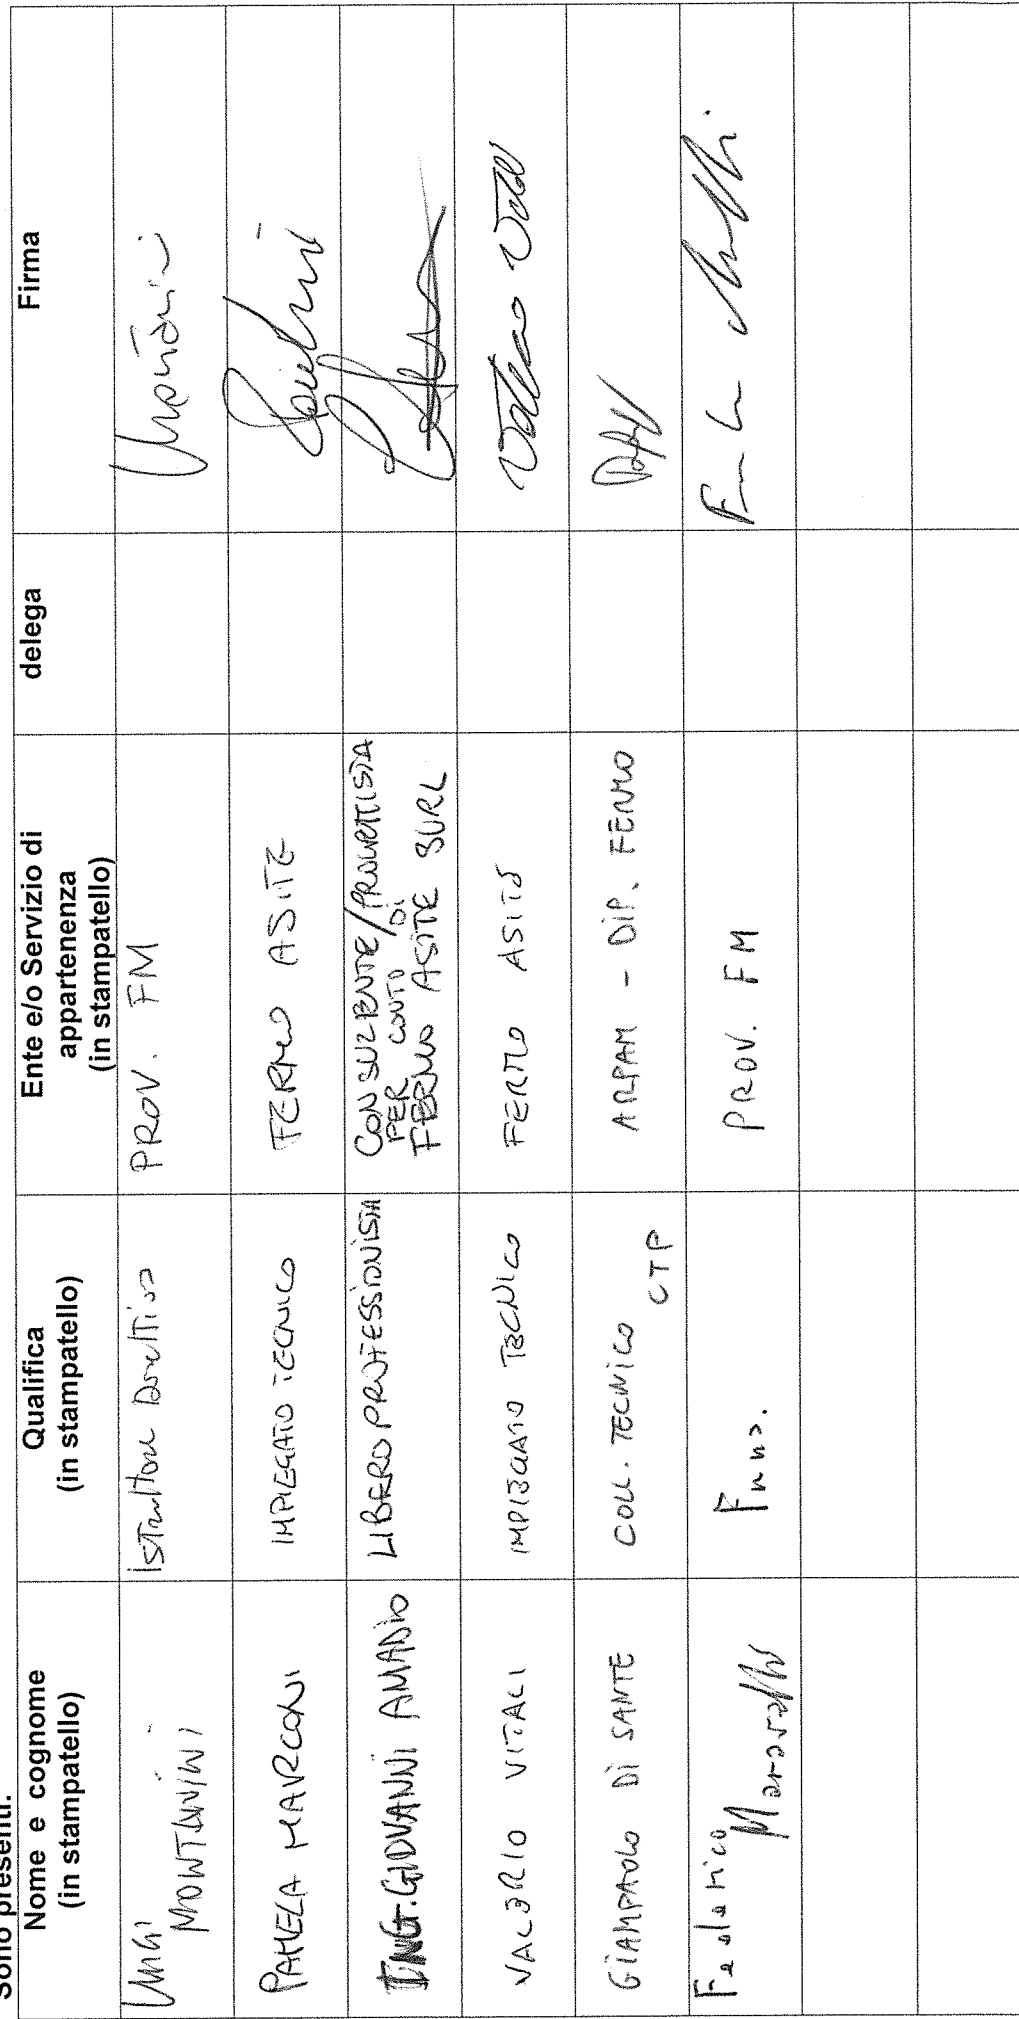 Sono presenti:
Nome e cognome
(in stampatello)
Qualifica
(in stampatello)
Ente e/o Servizio di
appartenenza
(in stampatello)
delega
Firma
LUIGI
MONTANINI
Istruttore Direttivo
PROV. FM
Montanini
PAMELA MARCONI
IMPIEGATO TECNICO
FERMO ASITE
ING. GIOVANNI AMADIO
LIBERO PROFESSIONISTA
CONSULENTE/PROGETTISTA
PER CONTO DI
FERMO ASITE SURL
VALERIO VITALI
IMPIEGATO TECNICO
FERMO ASITE
GIAMPAOLO DI SANTE
COLL. TECNICO
CTP
ARPAM - DIP. FERMO
Federico
PROV. FM